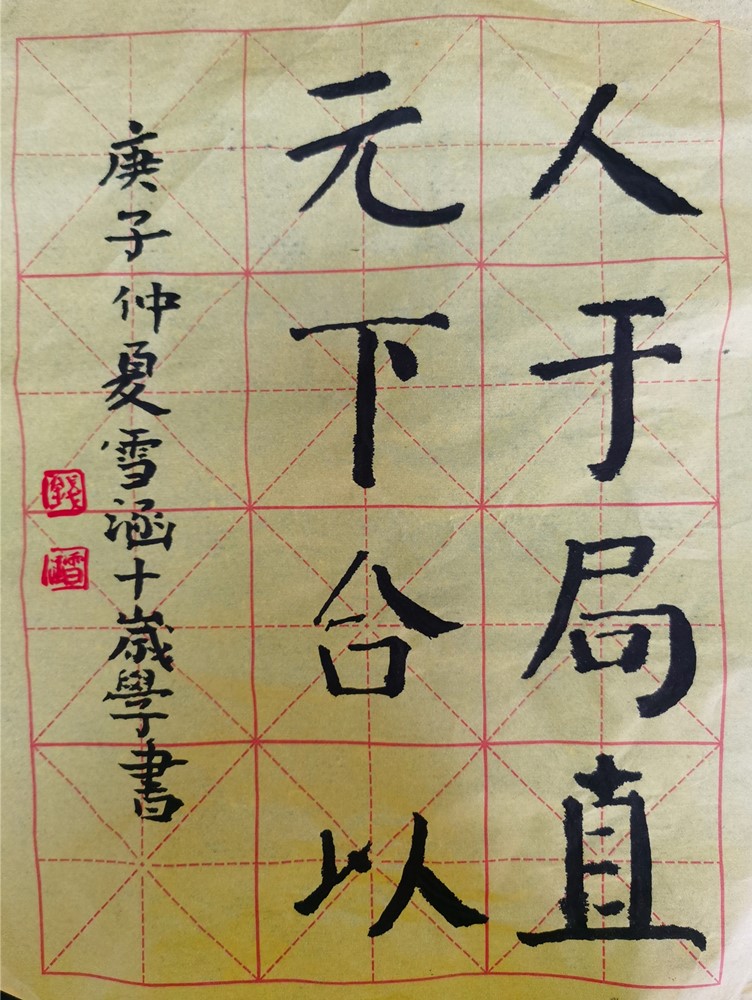 人于局直
元下合以
庚子仲夏雪涵十歲學書